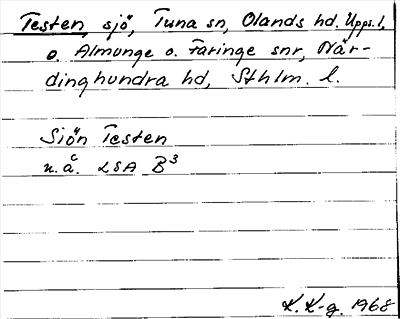 Testen, sjö, Tuna sn, Olands hd. Upps. l.
o. Almunge o. Faringe snr, När-
dinghundra hd, Sthlm. l.
Sjön Testen
u. å. LSA B3
K. K-g. 1968